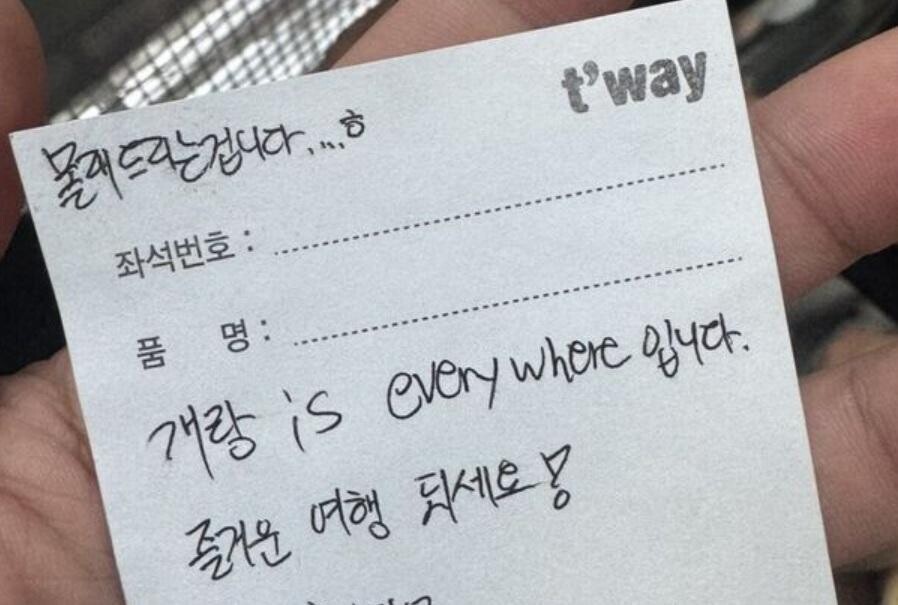 t'way
몰래드리는겁니다....ㅎ
좌석번호 :
품 명 :
개랑 is everywhere 입니다.
즐거운 여행 되세요!